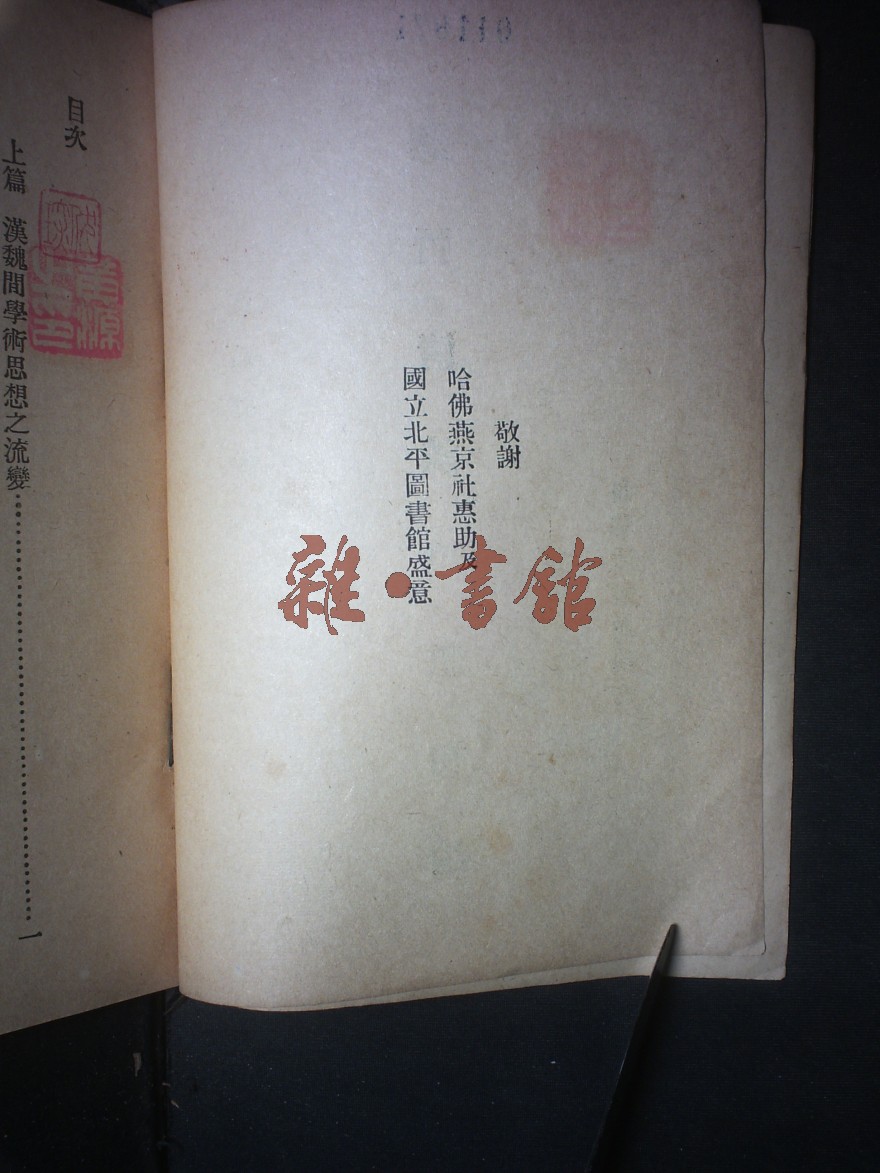 敬謝
哈佛燕京社惠助及
國立北平圖書館盛意
目次
上篇 漢魏間學術思想之流變……一
雜·書館